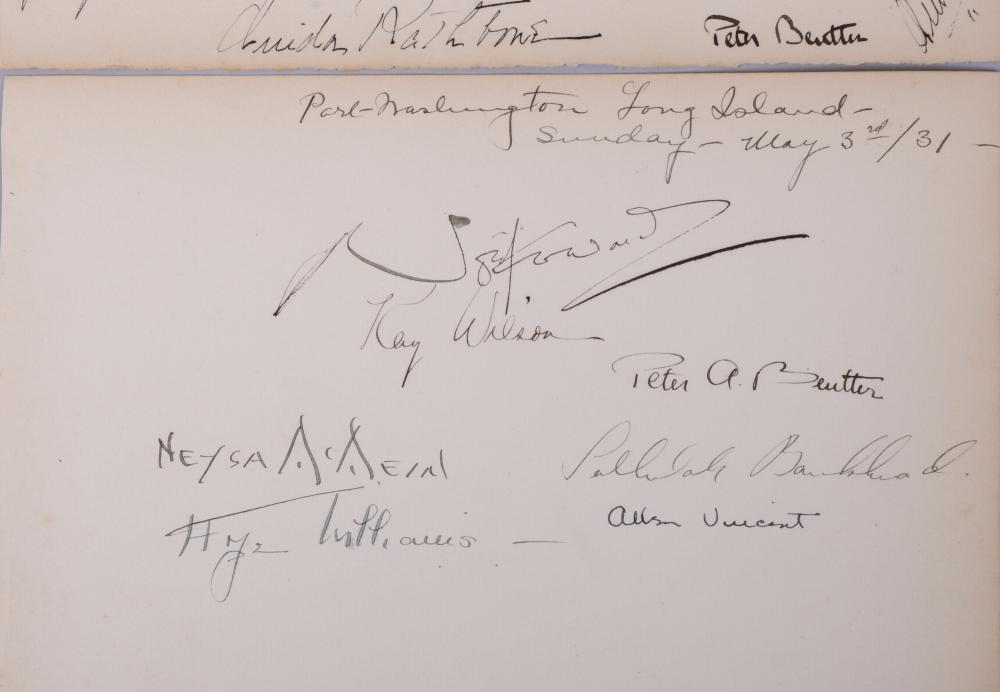 Ouida Rathbone
Peter Beutter
Port-Washington Long Island-
Sunday - May 3rd/31 -
Noël Coward
Kay Wilson
Peter A. Beutter
NEYSA McMEIN
Tallulah Bankhead.
Allen Vincent
Hope Williams -